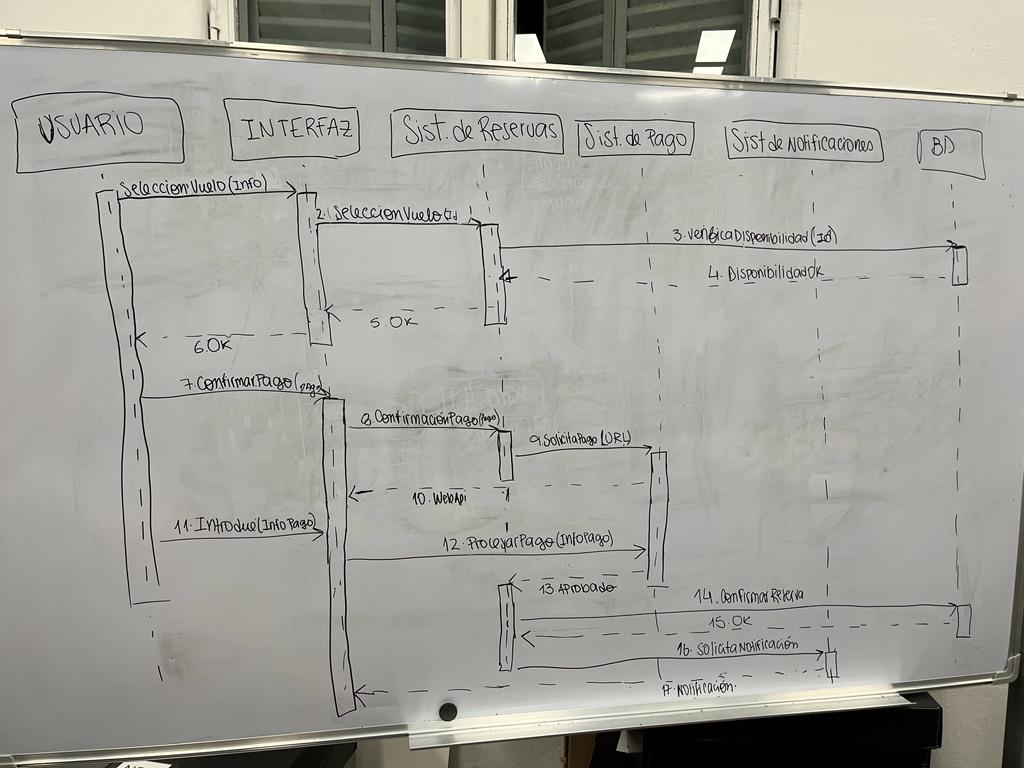 USUARIO
INTERFAZ
Sist. de Reservas
Sist. de Pago
Sist de Notificaciones
BD
SeleccionVuelo(Info)
2. SeleccionVuelo(Id
3. VerificaDisponibilidad(Id)
4. DisponibilidadOK
5. OK
6. OK
7. ConfirmarPago(pago)
8. ConfirmaciónPago(Pago)
9. SolicitaPago(URL)
10. WebApi
11. Introduce(InfoPago)
12. ProcesarPago(InfoPago)
13. Aprobado
14. Confirmar Reserva
15. OK
16. Solicita Notificación
17. Notificación.